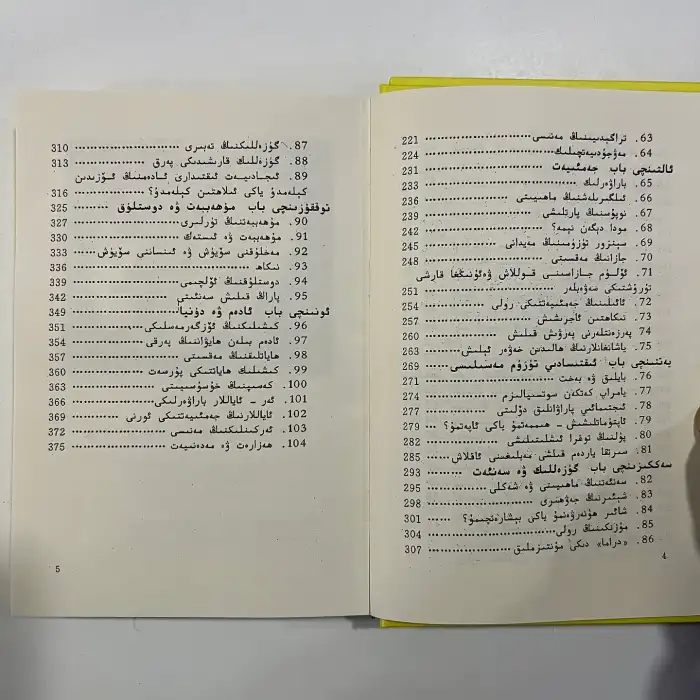 63. تراگېدىيىنىڭ مەنىسى 221
64. مەۋجۇدىيەتچىلىك 224
ئالتىنچى باب جەمئىيەت 231
65. باراۋەرلىك 233
66. ئىلگىرىلەشنىڭ ماھىيىتى 236
67. نوپۇسنىڭ پارتلىشى 239
68. مودا دېگەن نېمە؟ 242
69. سېنزور تۈزۈمىنىڭ مەيدانى 245
70. جازانىڭ مەقسىتى 248
71. ئۆلۈم جازاسىنى قوللاش ۋە ئۇنىڭغا قارشى
تۇرۇشتىكى سەۋەبلەر 251
72. ئائىلىنىڭ جەمئىيەتتىكى رولى 254
73. نىكاھتىن ئاجرىشىش 257
74. پەرزەنتلەرنى پەرۋىش قىلىش 260
75. ياشانغانلارنىڭ ھالىدىن خەۋەر ئېلىش 263
يەتتىنچى باب ئىقتىسادىي تۈزۈم مەسىلىسى 269
76. بايلىق ۋە بەخت 271
77. يامراپ كەتكەن سوتسىيالىزم 274
78. ئىجتىمائىي پاراۋانلىق دۆلىتى 277
79. ئاپتوماتلىشىش - ھىممەتمۇ ياكى ئاپەتمۇ؟ 279
80. پۇلنىڭ توغرا ئىشلىتىلىشى 282
81. سىرتقا ياردەم قىلىش مەبلىغىنى ئاقلاش 285
سەككىزىنچى باب گۈزەللىك ۋە سەنئەت 293
82. سەنئەتنىڭ ماھىيىتى ۋە شەكلى 295
83. شېئىرنىڭ جەۋھىرى 298
84. شائىر ھۈنەرۋەنمۇ ياكى بېشارەتچىمۇ؟ 301
85. مۇزىكىنىڭ رولى 304
86. «دراما» دىكى مۇنتىزىملىق 307
4
87. گۈزەللىكنىڭ تەبىرى 310
88. گۈزەللىك قارىشىدىكى پەرق 313
89. ئىجادىيەت ئىقتىدارى ئادەمنىڭ ئۆزىدىن
كېلەمدۇ ياكى ئىلاھتىن كېلەمدۇ؟ 316
توققۇزىنچى باب مۇھەببەت ۋە دوستلۇق 325
90. مۇھەببەتنىڭ تۈرلىرى 327
91. مۇھەببەت ۋە ئىستەك 330
92. مەخلۇقنى سۆيۈش ۋە ئىنساننى سۆيۈش 333
93. نىكاھ 336
94. دوستلۇقنىڭ ئۆلچىمى 339
95. پاراڭ قىلىش سەنئىتى 342
ئونىنچى باب ئادەم ۋە دۇنيا 349
96. كىشىلىكنىڭ ئۆزگەرمەسلىكى 351
97. ئادەم بىلەن ھايۋاننىڭ پەرقى 354
98. ھاياتلىقنىڭ مەقسىتى 357
99. كىشىلىك ھاياتتىكى پۇرسەت 360
100. كەسىپنىڭ خۇسۇسىيىتى 363
101. ئەر - ئاياللار باراۋەرلىكى 366
102. ئاياللارنىڭ جەمئىيەتتىكى ئورنى 369
103. ئەركىنلىكنىڭ مەنىسى 372
104. ھەزارەت ۋە مەدەنىيەت 375
5